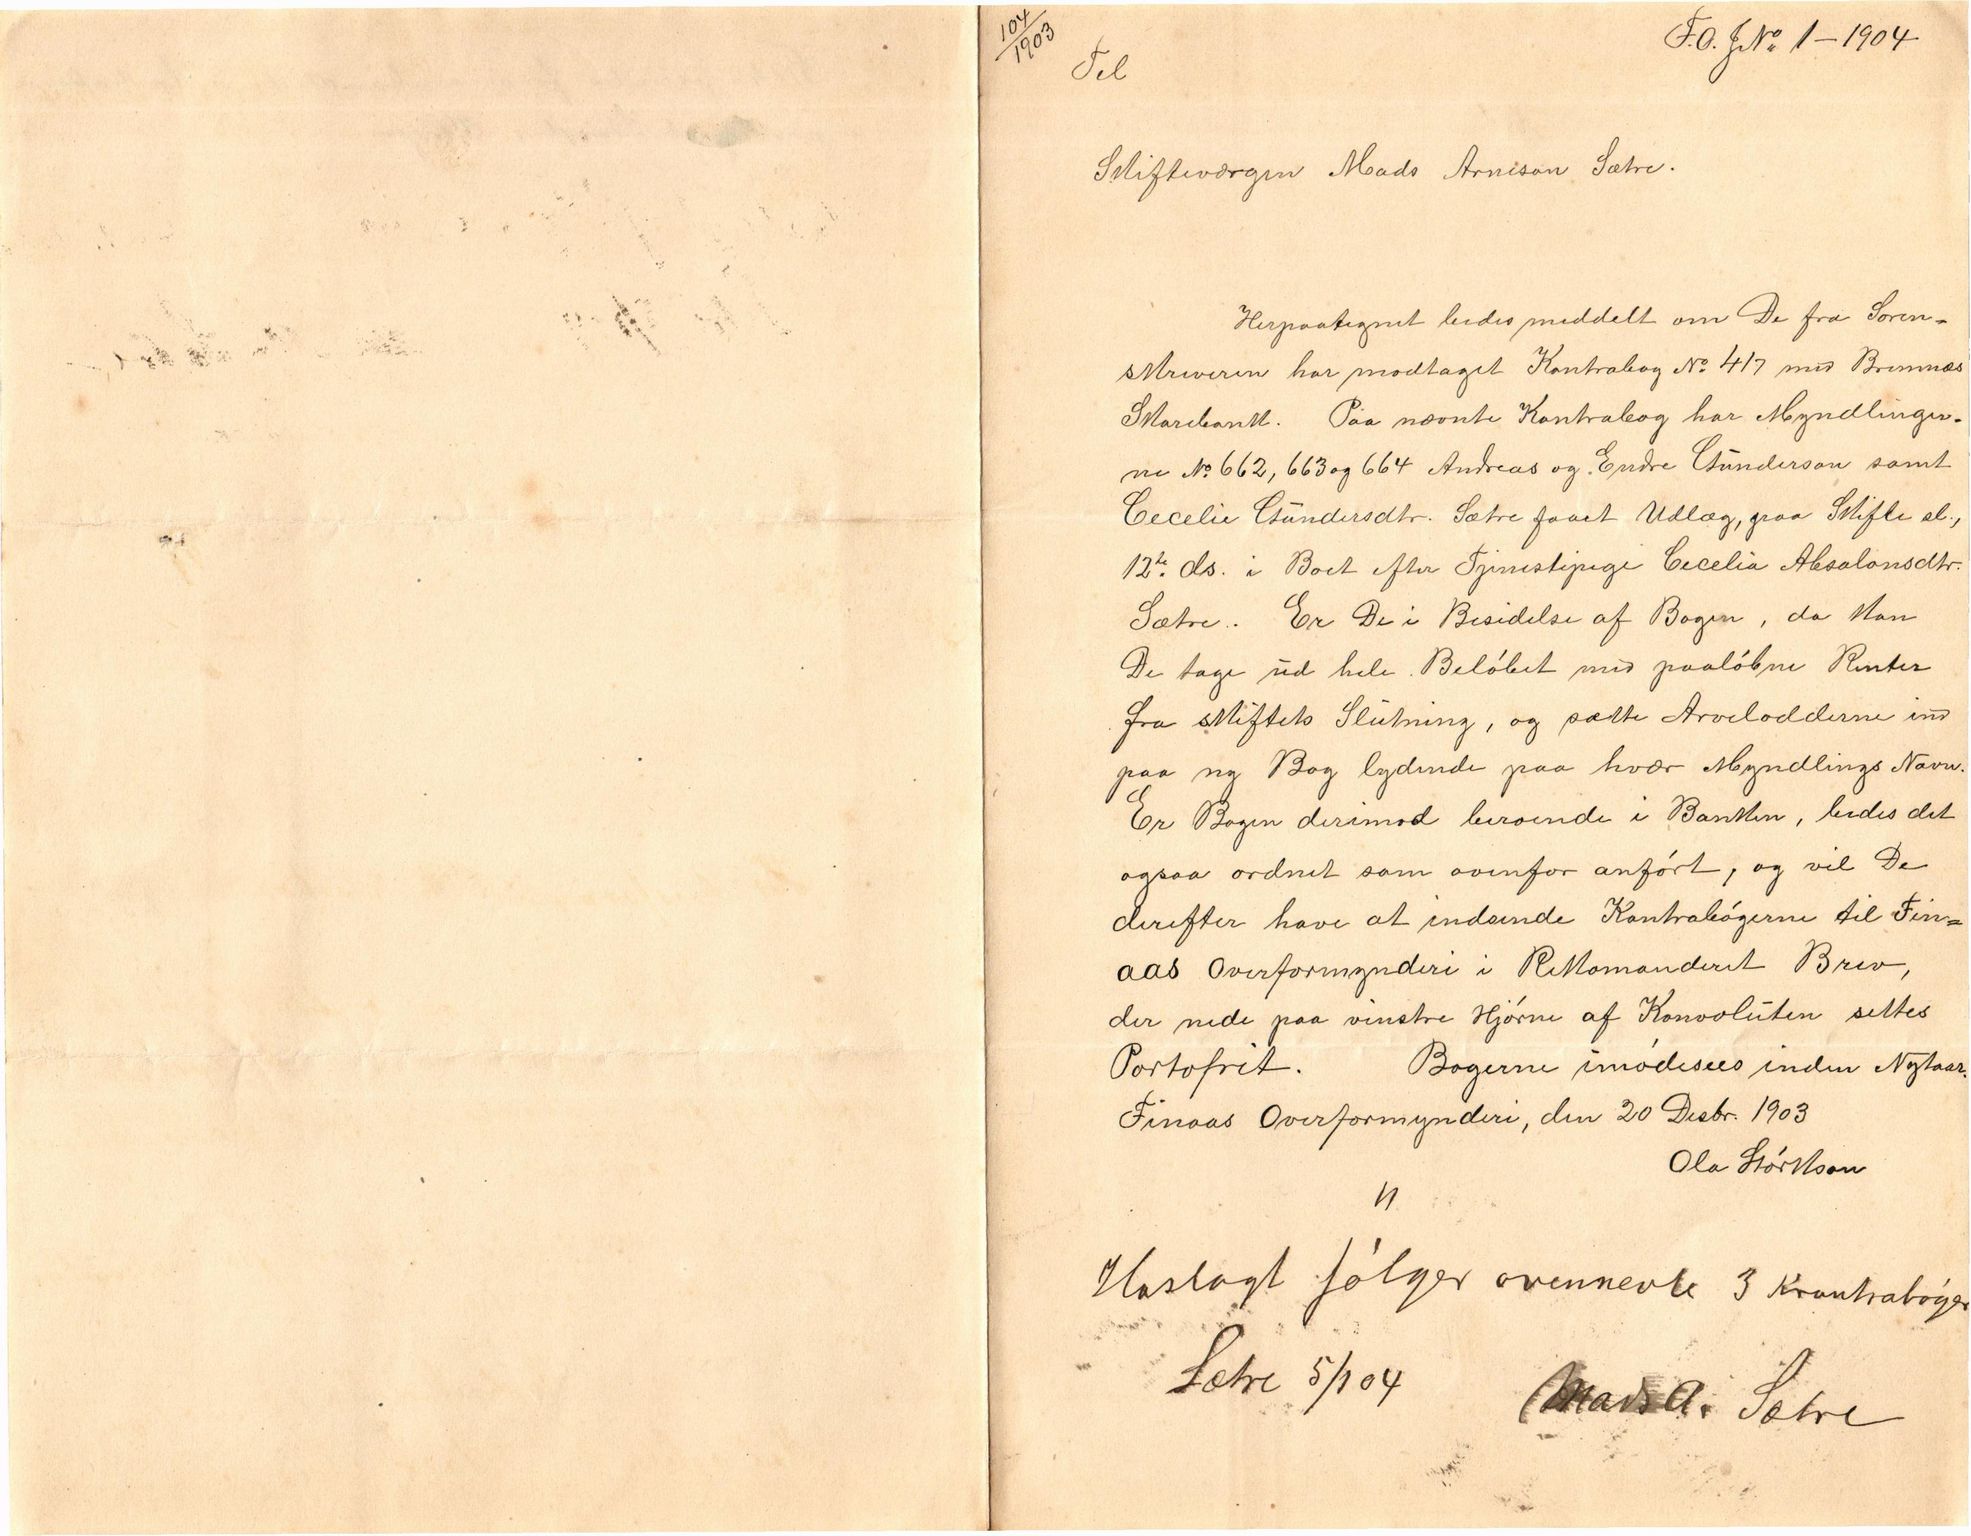 104/1903
F.O. J No. 1 – 1904
Til
Skifteværgen Mads Arneson Sætre.
Herpaategnet bedes meddelt om De fra Soren-
skriveren har modtaget Kontrabog No. 417 med Bremnæs
Sparebank. Paa nævnte Kontrabog har Myndlinger-
ne No. 662, 663 og 664 Andreas og Endre Gunderson samt
Cecelie Gundersdtr. Sætre faaet Udlæg, paa Skifte sl.,
12te ds. i Boet efter Tjenestepige Cecelia Absalonsdtr.
Sætre. Er De i Besidelse af Bogen, da kan
De tage ud hele Beløbet med paaløbne Renter
fra skiftets Slutning, og sætte Arvelodderne ind
paa ny Bog lydende paa hvær Myndlings Navn.
Er Bogen derimod beroende i Banken, bedes det
ogsaa ordnet som ovenfor anført, og vil De
derefter have at indsende Kontrabøgerne til Fin=
aas Overformynderi i Rekomanderet Brev,
der nede paa venstre Hjørne af Konvoluten settes
Portofrit. Bøgerne imødesees inden Nytaar.
Finaas Overformynderi, den 20 Desbr. 1903
Ola Størkson
Haslagt følger ovennevte 3 Krontrabøger
Sætre 5/1 04
Mads A. Sætre